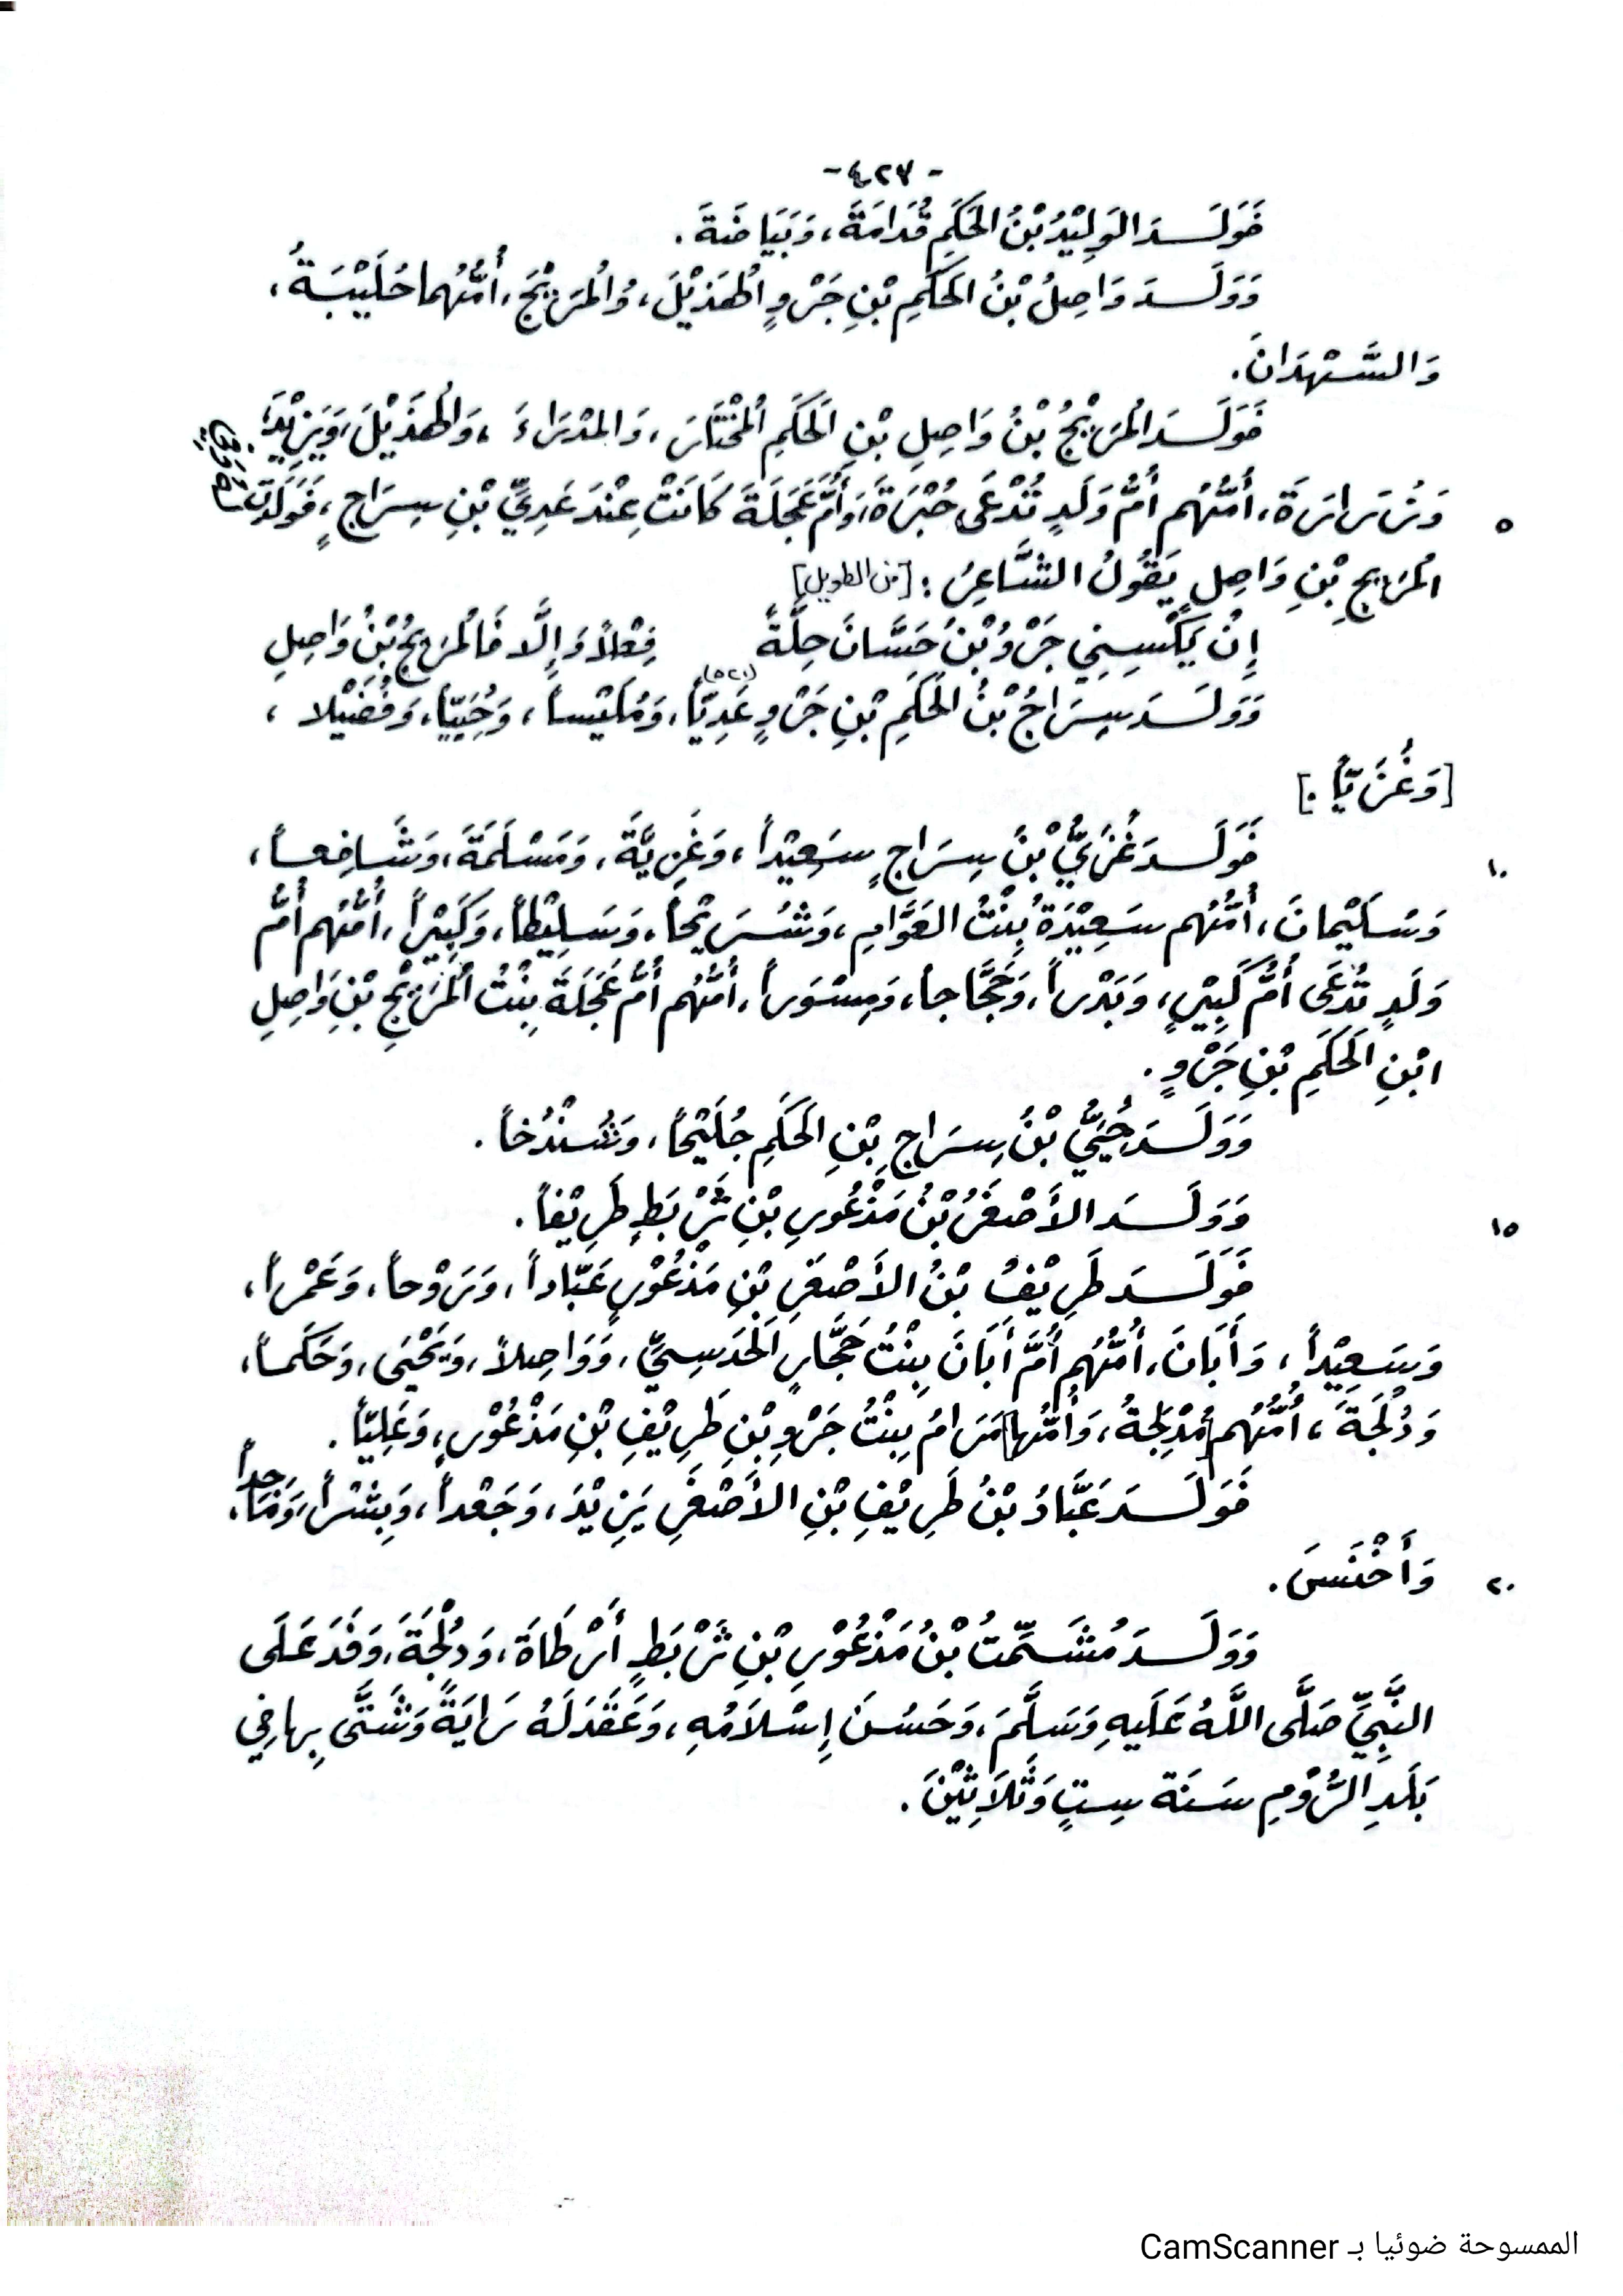 -٤٢٧-
فَوَلَدَ الوَلِيْدُ بْنُ الحَكَمِ قُدَامَةَ، وَبَيَاضَةَ.
وَوَلَدَ وَاصِلُ بْنُ الحَكَمِ بْنِ جَرْوٍ الْهَذِيْلَ، وَالْمَرِيْجَ، أُمُّهُما حُلَيْبَةُ،
وَالسَّهْدَانَ.
فَوَلَدَ الْمَرِيْجُ بْنُ وَاصِلِ بْنِ الحَكَمِ الْمُخْتَارَ، وَالمِدْرَاءَ، وَالْهُذَيْلَ، وَيَزِيْدَ،
٥ وَزُرَارَةَ، أُمُّهُم أُمُّ وَلَدٍ تُدْعَى حُبْرَةَ، وَأُمَّ عَجَلَةَ كَانَتْ عِنْدَ عَدِيِّ بْنِ سِرَاجٍ، فَوَلَدَتْ لَهُ
الْمَرِيجِ بْنِ وَاصِلٍ يَقُولُ الشَّاعِرُ: [من الطويل]
إِنْ يَكْسِسِنِي جَرْوُ بْنُ حَسَّانَ حِلَّةً فِعْلاً وَإِلَّا فَالْمَرِيجُ بْنُ وَاصِلِ
وَوَلَدَ سِرَاجُ بْنُ الحَكَمِ بْنِ جَرْوٍ عَدِيّاً، وَمُلَيْساً، وَحُيَيّاً، وَفُضَيْلا،
[وَغُزَيّاً.]
١٠ فَوَلَدَ غُزَيُّ بْنُ سِرَاجٍ سَعِيْداً، وَغَزِيَّةَ، وَمَسْلَمَةَ، وَشَافِعاً،
وَسُلَيْمانَ، أُمُّهُم سَعِيْدَةُ بِنْتُ العَوَّامِ، وَشُرَيْحاً، وَسَلِيْطاً، وَكَبِيْراً، أُمُّهُم أُمُّ
وَلَدٍ تُدْعَى أُمُّ كَبِيْرٍ، وَبَدْراً، وَحَجَّاجاً، وَمِسْوَراً، أُمُّهُم أُمُّ عَجَلَةَ بِنْتُ الْمَرِيْجِ بْنِ وَاصِلِ
ابْنِ الحَكَمِ بْنِ جَرْوٍ.
وَوَلَدَ حُيَيُّ بْنُ سِرَاجِ بْنِ الحَكَمِ جُلَيْحاً، وَشُنْدُخاً.
١٥ وَوَلَدَ الأَصْغَرُ بْنُ مَذْعُورِ بْنِ ثَرْبَطٍ طَرِيْفاً.
فَوَلَدَ طَرِيْفُ بْنُ الأَصْغَرِ بْنِ مَذْعُوْرٍ عَبّاداً، وَرَوْحاً، وَعَمْراً،
وَسَعِيْداً، وَأَبَانَ، أُمُّهُم أُمُّ أَبَانَ بِنْتُ حَجَّارٍ الْحَدَسِيِّ، وَوَاصِلاً، وَيَحْيَى، وَحَكَماً،
وَدُلْجَةَ، أُمُّهُم [مُدْلِجَةُ، وَأُمُّها] مَرَامُ بِنْتُ جَرْوِ بْنِ طَرِيْفِ بْنِ مَذْعُوْرٍ، وَعَلِيّاً.
فَوَلَدَ عَبَّادُ بْنُ طَرِيْفِ بْنِ الأَصْغَرِ يَزِيْدَ، وَجَعْداً، وَبِشْراً،
٢٠ وَأَخْنَسَ.
وَوَلَدَ مُشَمِّتُ بْنُ مَذْعُوْرِ بْنِ ثَرْبَطٍ أَرْطَاةَ، وَدُلْجَةَ، وَفَدَ عَلَى
النَّبِيِّ صَلَّى اللَّهُ عَلَيهِ وَسَلَّمَ، وَحَسُنَ إِسْلاَمُهِ، وَعَقَدَ لَهُ رَايَةً وَشَتَّى بِها فِي
بَلَدِ الرُّوْمِ سَنَة سِتٍ وَثَلاَثِيْنَ.
الممسوحة ضوئيا بـ CamScanner